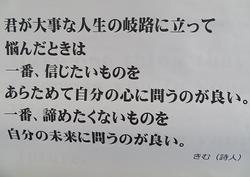 君が大事な人生の岐路に立って
悩んだときは
一番、信じたいものを
あらためて自分の心に問うのが良い。
一番、諦めたくないものを
自分の未来に問うのが良い。
きむ（詩人）